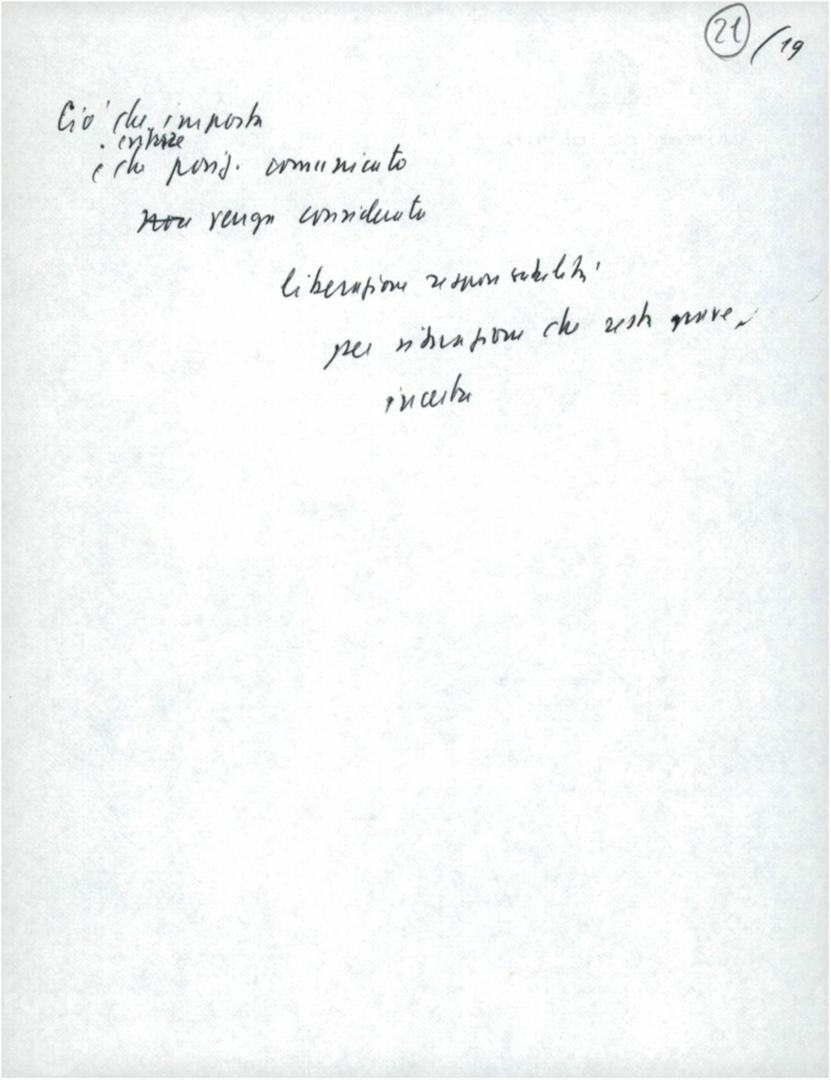 21 / 19
Ciò che importa
evitare
è che posiz. comunicato
non venga considerato
liberazione responsabilità
per situazione che resta grave,
incerta